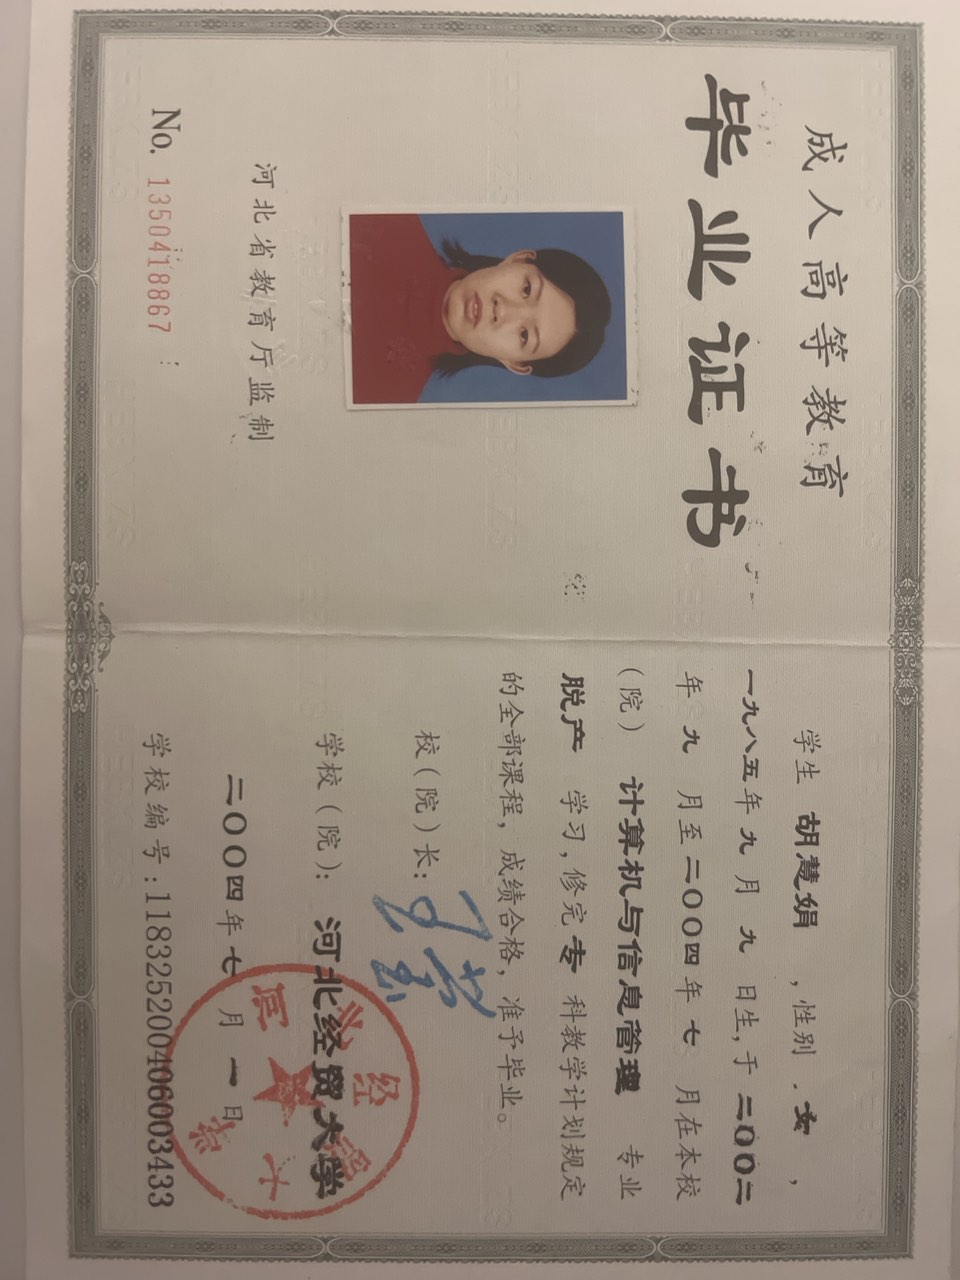 成人高等教育
毕业证书
河北省教育厅监制
No. 1350418867
学生 胡慧娟 , 性别 女 ,
一九八五年 九 月 九 日生, 于 二〇〇二
年 九 月至二〇〇四年 七 月在本校
(院) 计算机与信息管理 专业
脱产 学习, 修完 专 科教学计划规定
的全部课程, 成绩合格, 准予毕业。
校(院)长:
学校(院): 河北经贸大学
二〇〇四年 七 月 一 日
学校编号: 118325200406003433